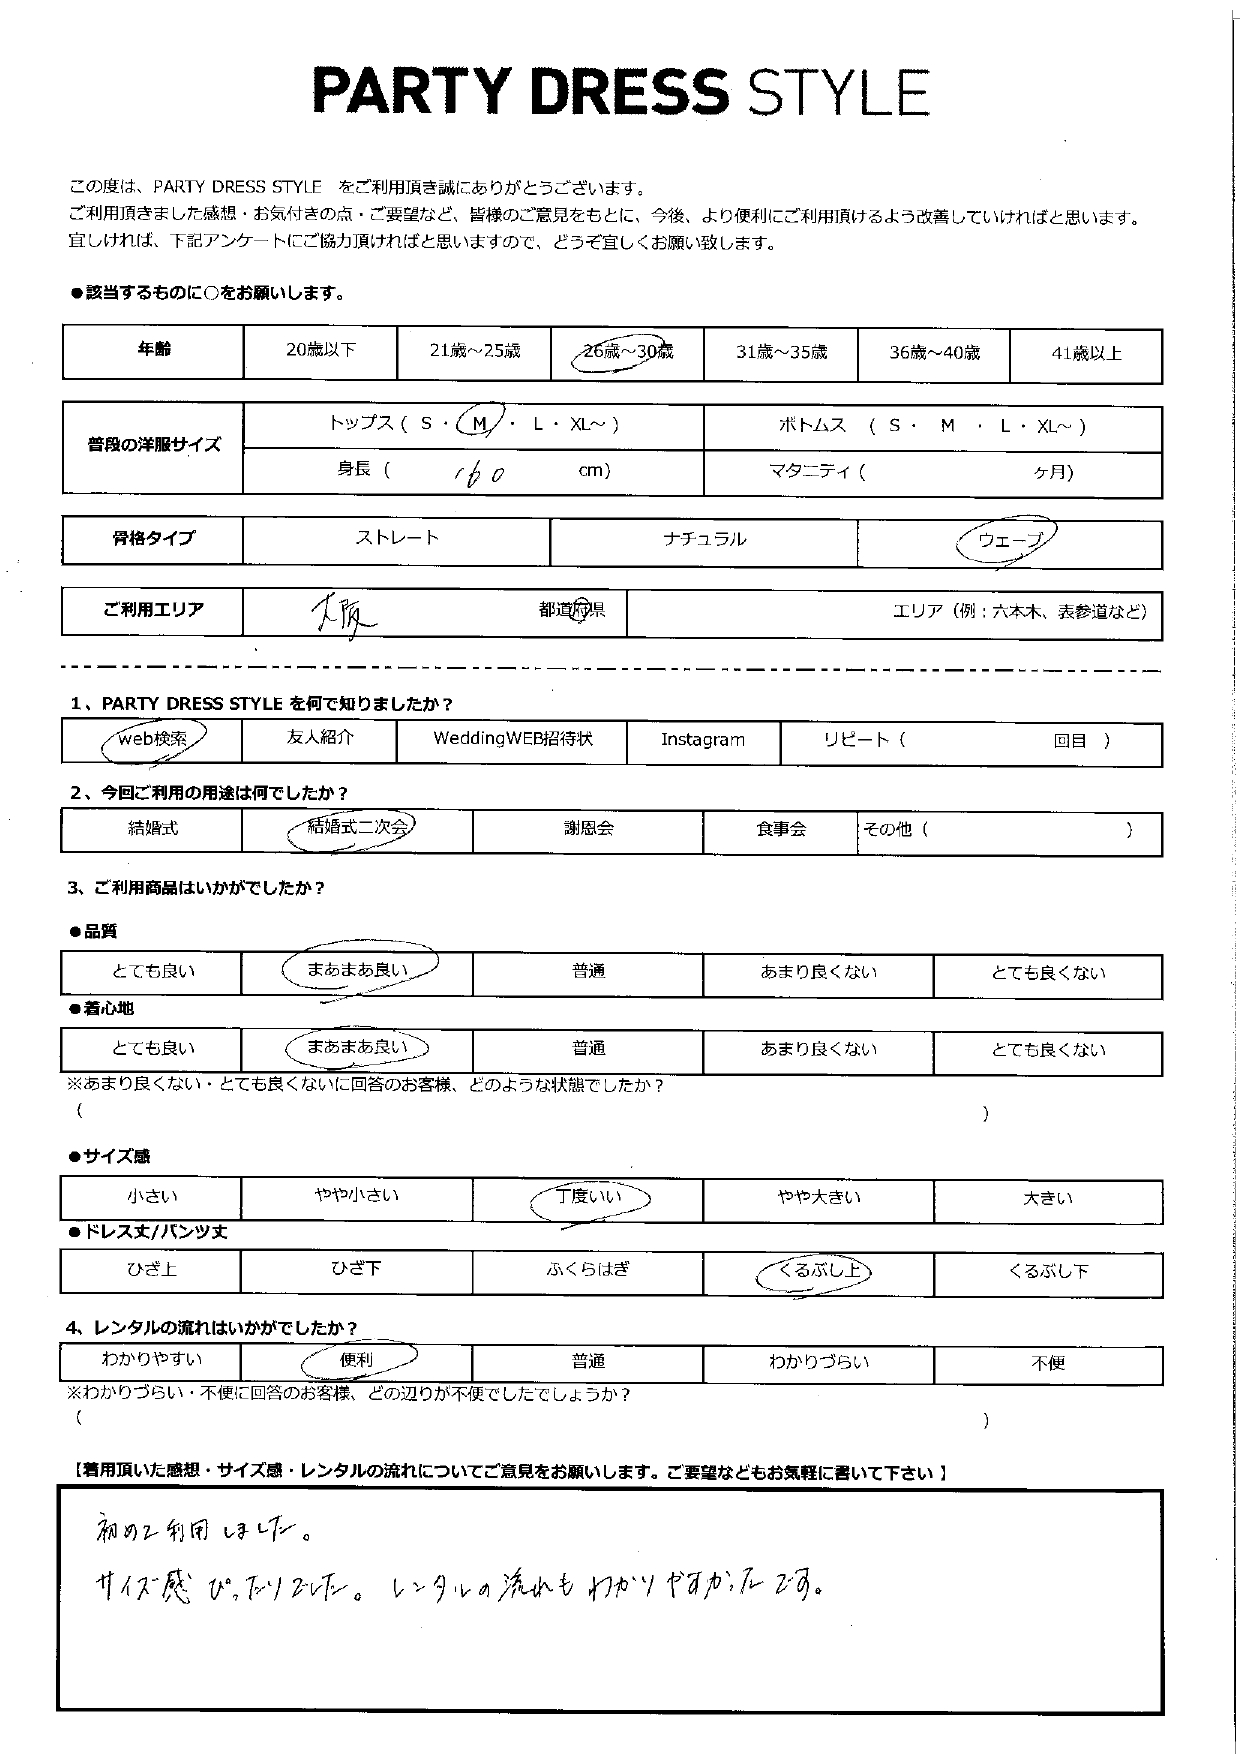 PARTY DRESS STYLE
この度は、PARTY DRESS STYLE をご利用頂き誠にありがとうございます。
ご利用頂きました感想・お気付きの点・ご要望など、皆様のご意見をもとに、今後、より便利にご利用頂けるよう改善していければと思います。
宜しければ、下記アンケートにご協力頂ければと思いますので、どうぞ宜しくお願い致します。
●該当するものに○をお願いします。
年齢 20歳以下 21歳～25歳 26歳～30歳 31歳～35歳 36歳～40歳 41歳以上
普段の洋服サイズ トップス ( S ・ M ・ L ・ XL～ ) ボトムス ( S ・ M ・ L ・ XL～ )
身長 ( 160 cm) マタニティ ( ヶ月)
骨格タイプ ストレート ナチュラル ウェーブ
ご利用エリア 大阪 都道府県 エリア（例：六本木、表参道など）
1、PARTY DRESS STYLE を何で知りましたか？
web検索 友人紹介 WeddingWEB招待状 Instagram リピート（ 回目 ）
2、今回ご利用の用途は何でしたか？
結婚式 結婚式二次会 謝恩会 食事会 その他（ ）
3、ご利用商品はいかがでしたか？
●品質
とても良い まあまあ良い 普通 あまり良くない とても良くない
●着心地
とても良い まあまあ良い 普通 あまり良くない とても良くない
※あまり良くない・とても良くないに回答のお客様、どのような状態でしたか？
( )
●サイズ感
小さい やや小さい 丁度いい やや大きい 大きい
●ドレス丈/パンツ丈
ひざ上 ひざ下 ふくらはぎ くるぶし上 くるぶし下
4、レンタルの流れはいかがでしたか？
わかりやすい 便利 普通 わかりづらい 不便
※わかりづらい・不便に回答のお客様、どの辺りが不便でしたでしょうか？
( )
【着用頂いた感想・サイズ感・レンタルの流れについてご意見をお願いします。ご要望などもお気軽に書いて下さい】
初めて利用しました。
サイズ感ぴったりでした。レンタルの流れもわかりやすかったです。